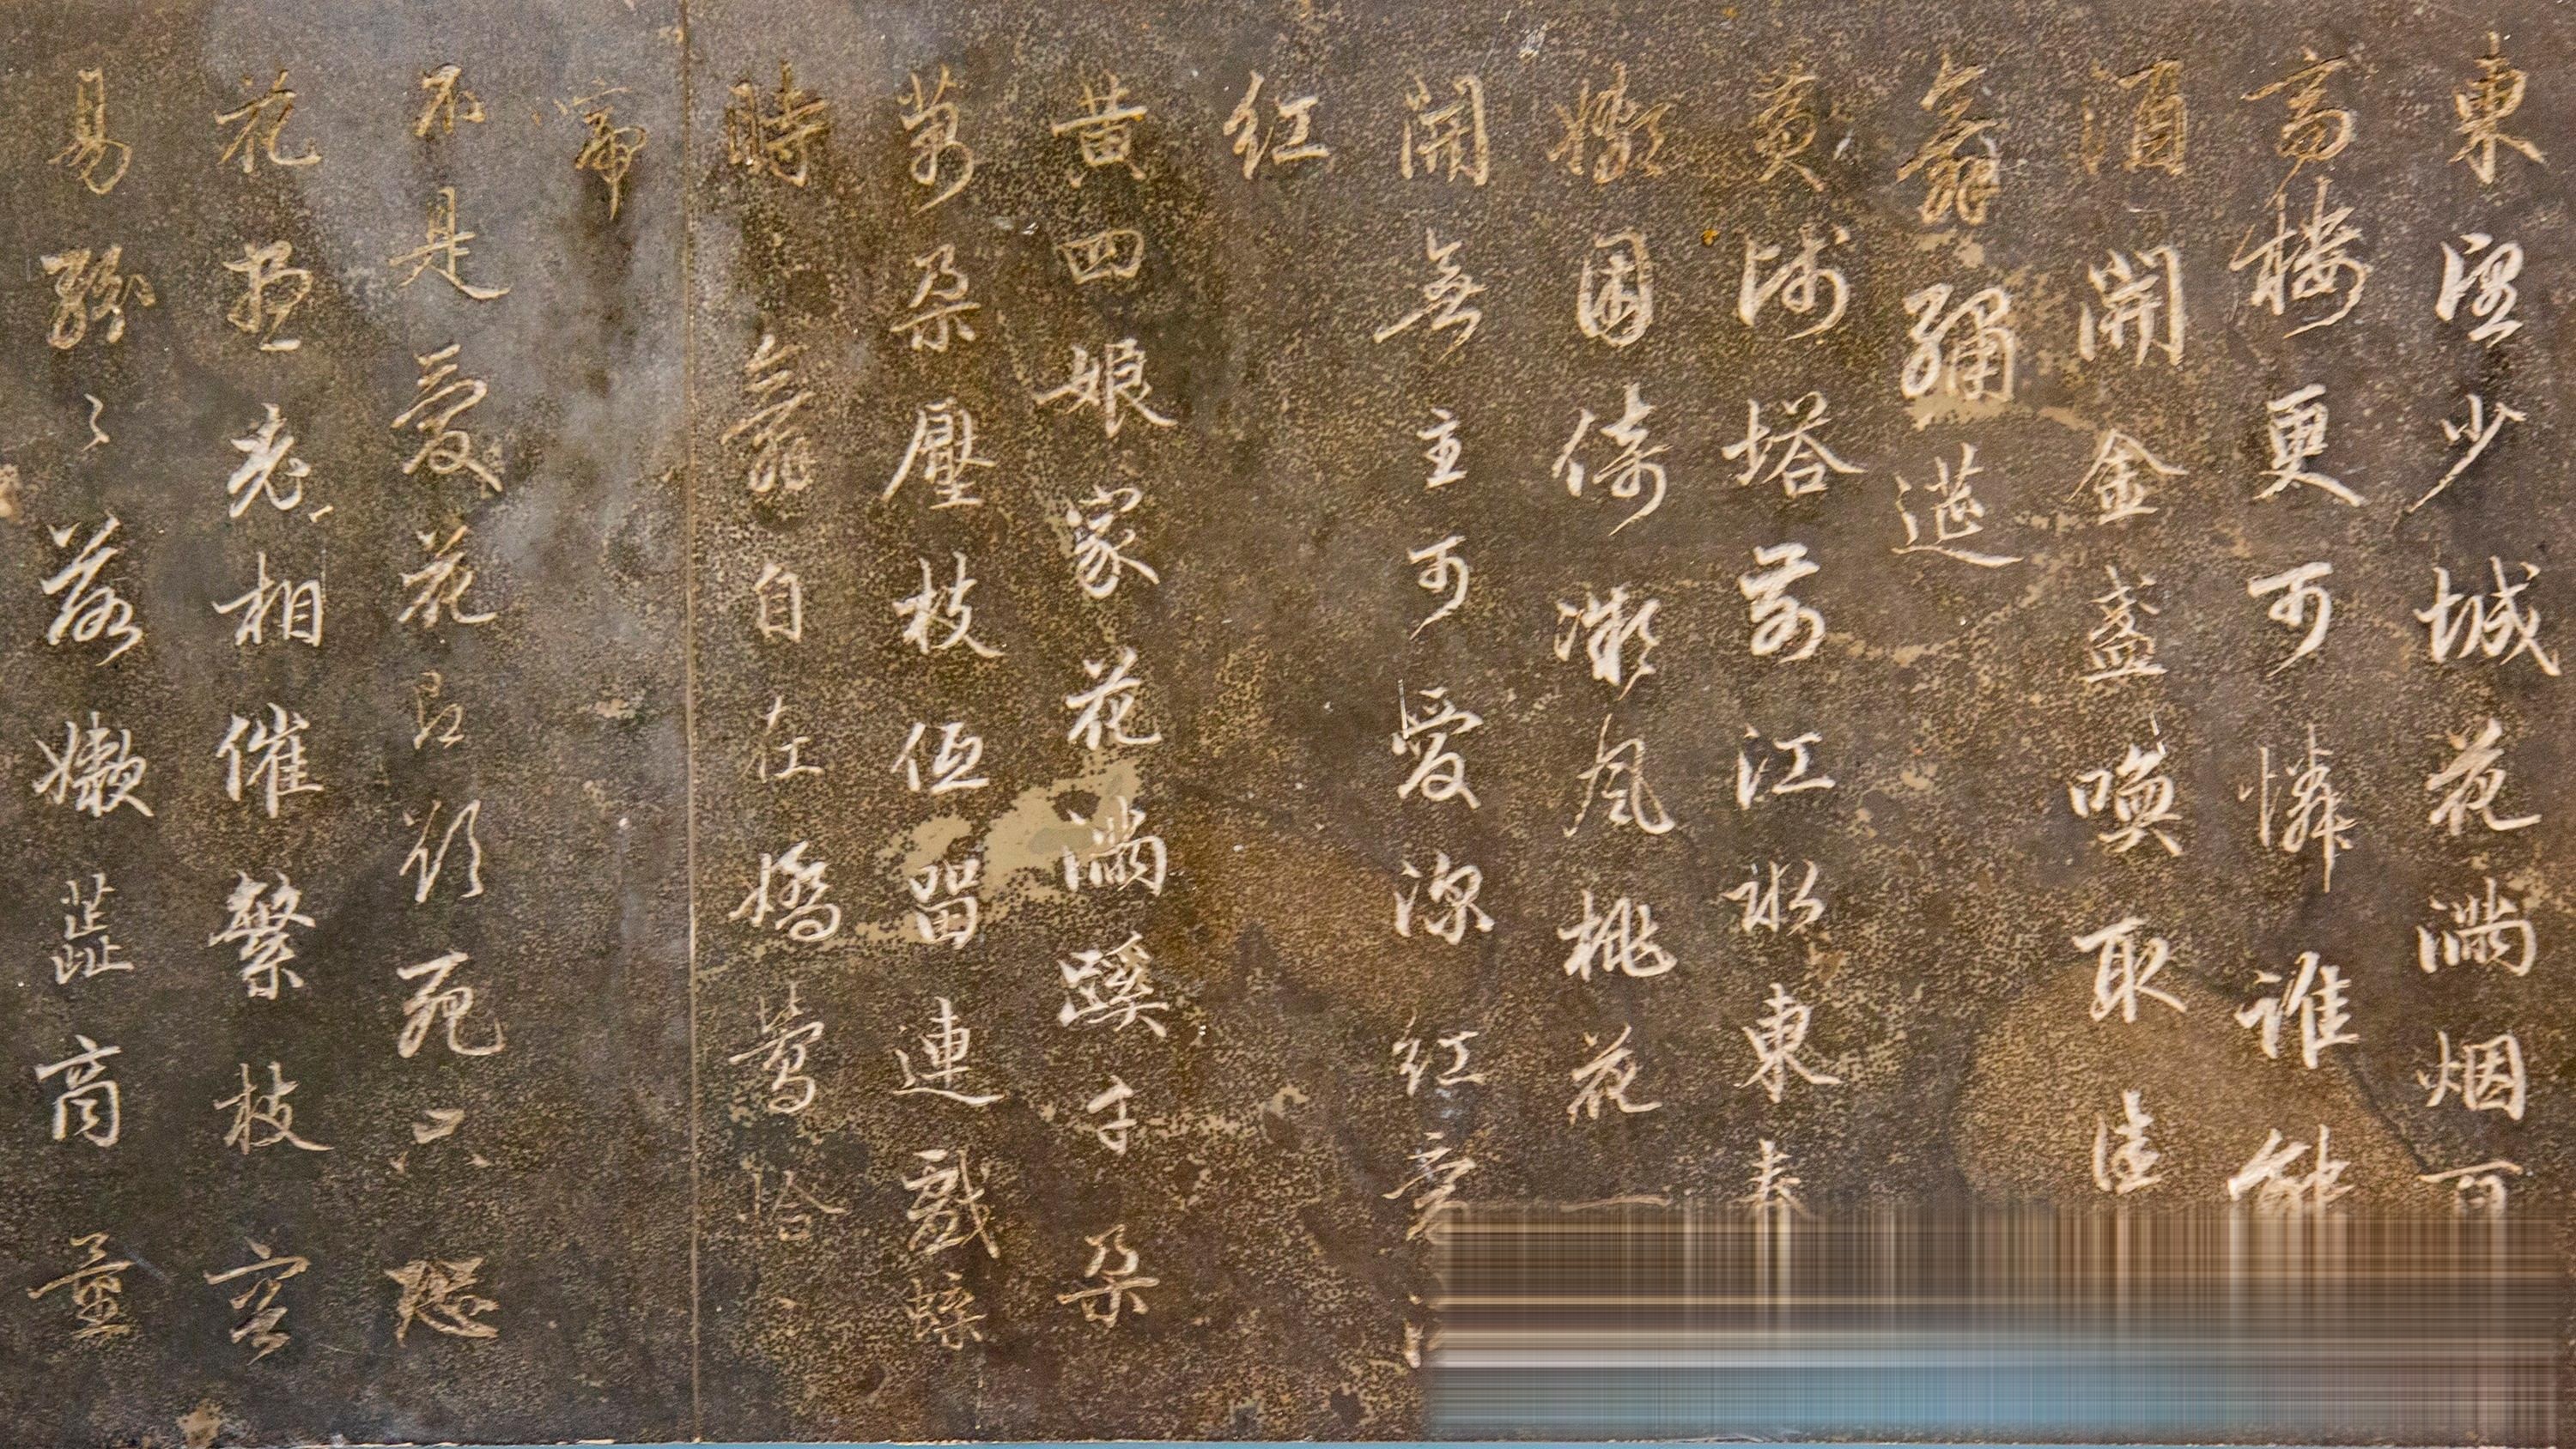 東望少城花滿烟百
高樓更可憐誰能
酒開金盞喚取佳
舞繡筵
黄師塔前江水東春
嬾困倚微風桃花一
開無主可愛深紅愛
紅
黄四娘家花滿蹊千朵
萬朵壓枝低留連戲蝶
時舞自在嬌鶯恰〻
啼
不是愛花即欲死只恐
花盡老相催繁枝容
易紛〻落嫩蕋商量